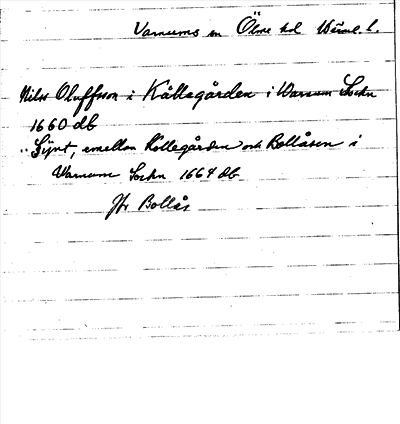 Varnums sn Ölme hd Värml. l.
Nils Oluffson i Kållegården i Warnum Sockn
1660 db
"Synt, emellan Kollegården och Bollåsen i
Warnum Sockn 1664 db
Jfr Bollås